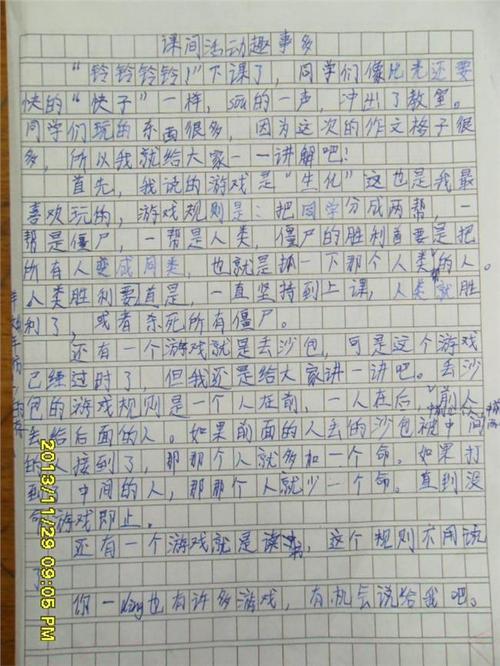 课间活动趣事多
“铃铃铃铃！”下课了，同学们像比光还要
快的“快子”一样，sou的一声，冲出了教室。
同学们玩的东西很多，因为这次的作文格子很
多，所以我就给大家一一讲解吧！
首先，我说的游戏是“生化”这也是我最
喜欢玩的，游戏规则是：把同学分成两帮，一
帮是僵尸，一帮是人类，僵尸的胜利首要是把
所有人变成同类，也就是抓一下那个人类的人。
人类胜利要首是，一直坚持到上课，人类就胜
利了，或者杀死所有僵尸。
还有一个游戏就是丢沙包，可是这个游戏
已经过时了，但我还是给大家讲一讲吧。丢沙
包的游戏规则是一个人在前，一人在后，前人
丢给后面的人。如果前面的人丢的沙包被中间
的人接到了，那那个人就多加一个命。如果打
到了中间的人，那那个人就少一个命。直到没
命游戏即止。
还有一个游戏就是读书，这个规则不用说
你一ding也有许多游戏，有机会说给我吧。
2013/11/29 09:05 PM